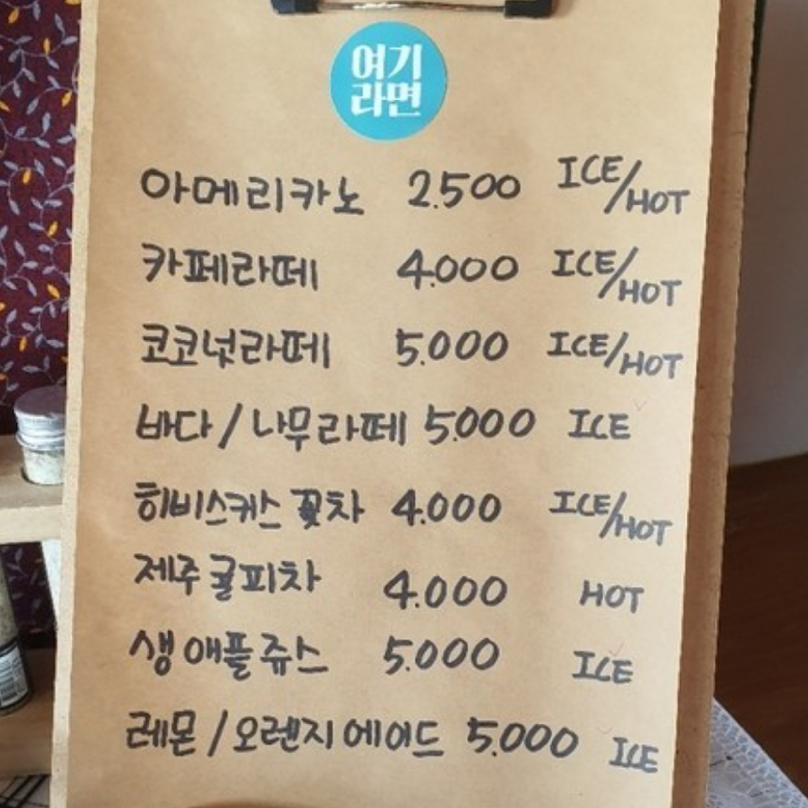 여기
라면
아메리카노 2.500 ICE/HOT
카페라떼 4.000 ICE/HOT
코코넛라떼 5.000 ICE/HOT
바다/나무라떼 5.000 ICE
히비스커스 꽃차 4.000 ICE/HOT
제주귤피차 4.000 HOT
생애플쥬스 5.000 ICE
레몬/오렌지에이드 5.000 ICE